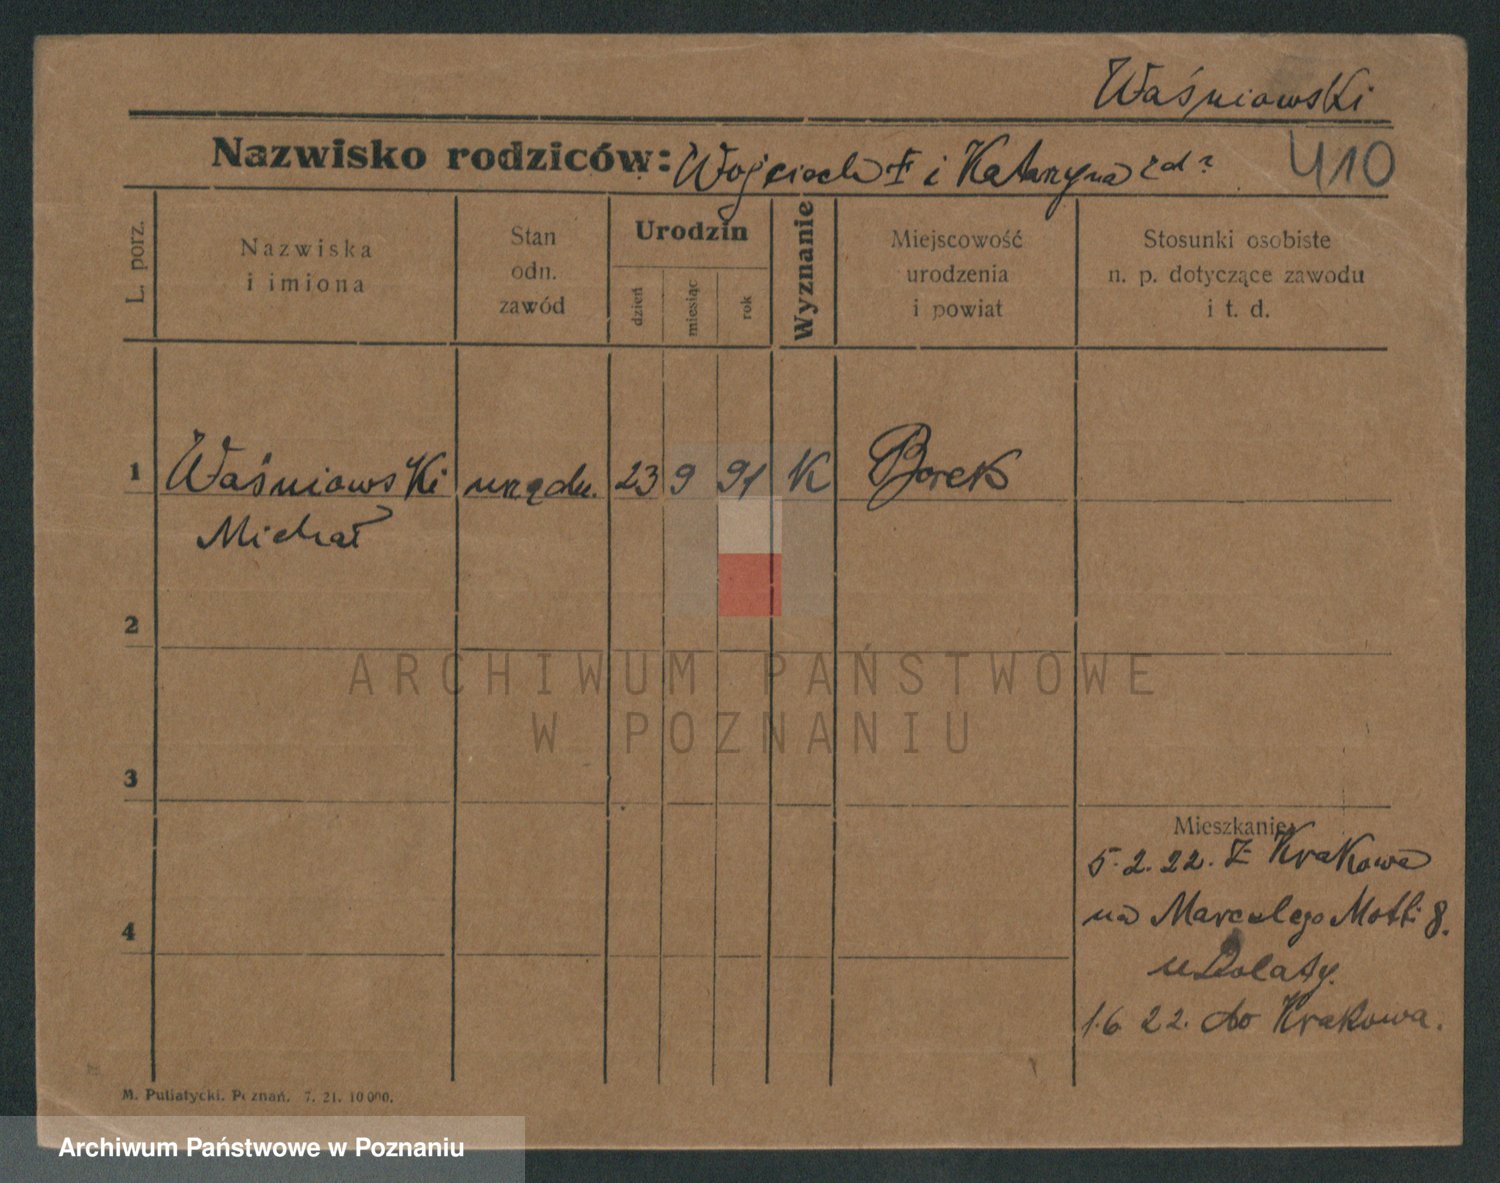 Waśniowski
Nazwisko rodziców: Wojciech i Katarzyna
410
L. porz.
Nazwiska
i imiona
Stan
odn.
zawód
Urodzin
dzień
miesiąc
rok
Wyznanie
Miejscowość
urodzenia
i powiat
Stosunki osobiste
n. p. dotyczące zawodu
i t. d.
1 Waśniowski urzędn. 23 9 91 K Borek
Michał
2
3
4
Mieszkanie:
5.2.22. z Krakowa
na Marcelego Motti 8.
u
1.6 22. do Krakowa.
M. Putiatycki. Poznań. 7. 21. 10 000.
ARCHIWUM PAŃSTWOWE
W POZNANIU
Archiwum Państwowe w Poznaniu